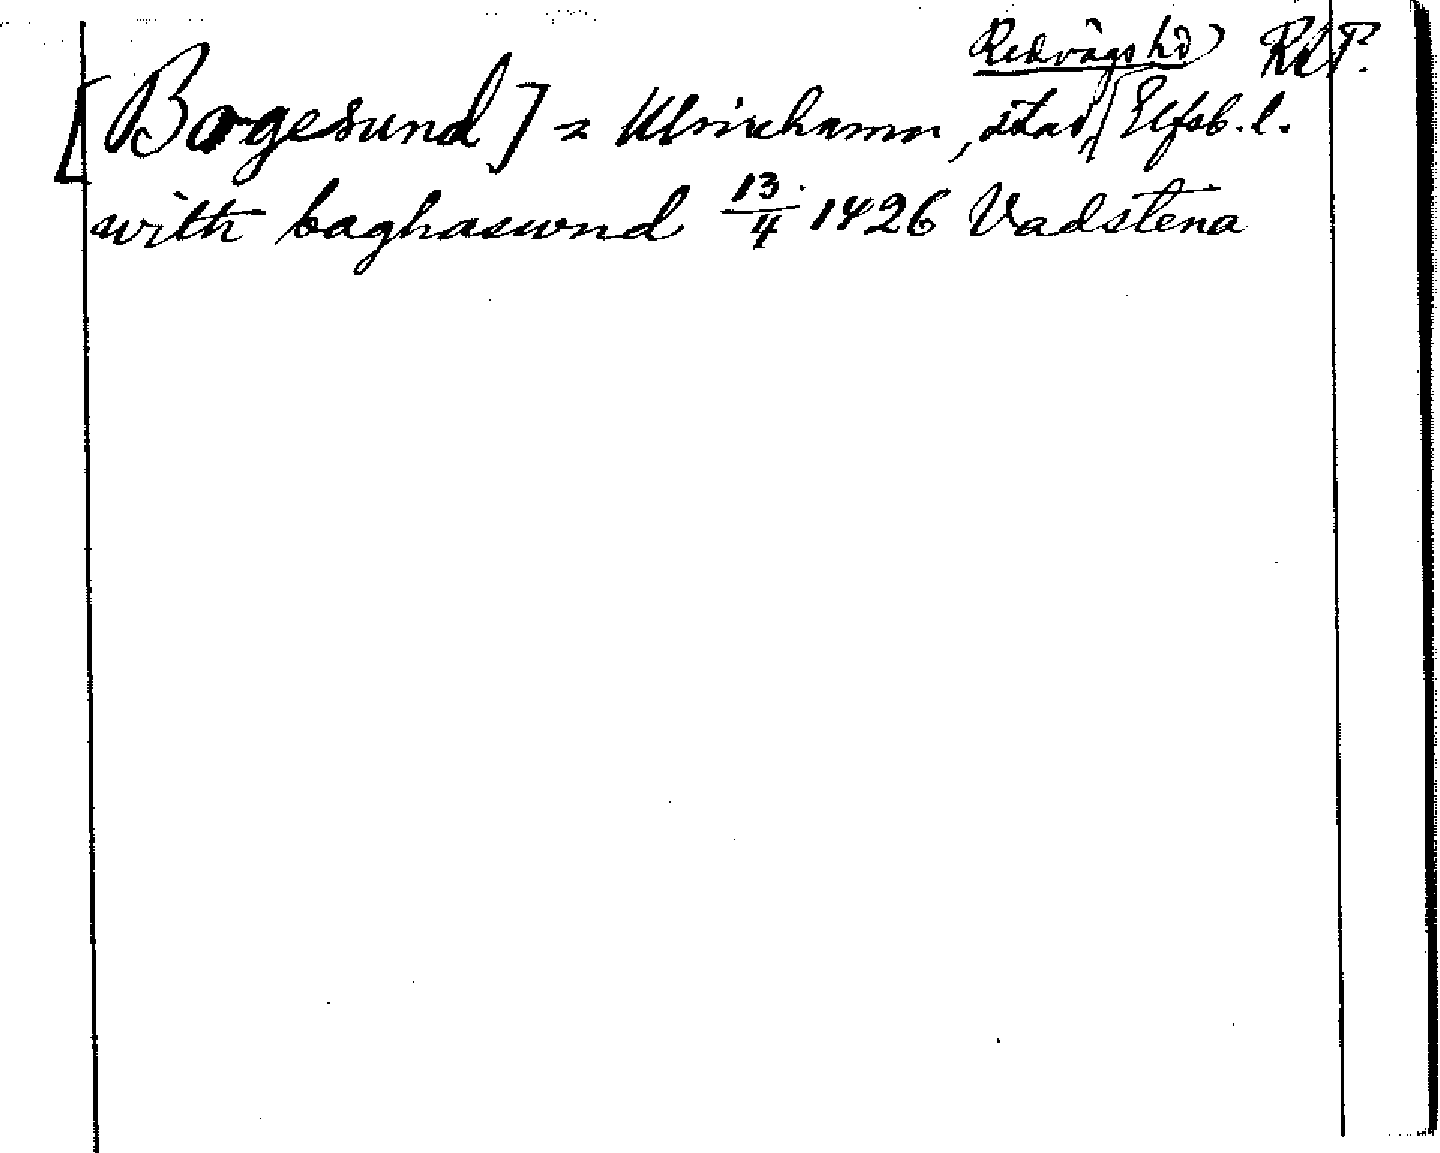 Redvägs hd RAP.
[Bogesund] = Ulricehamn, stad, Elfsb. l.
with baghaswnd 13/4 1426 Vadstena